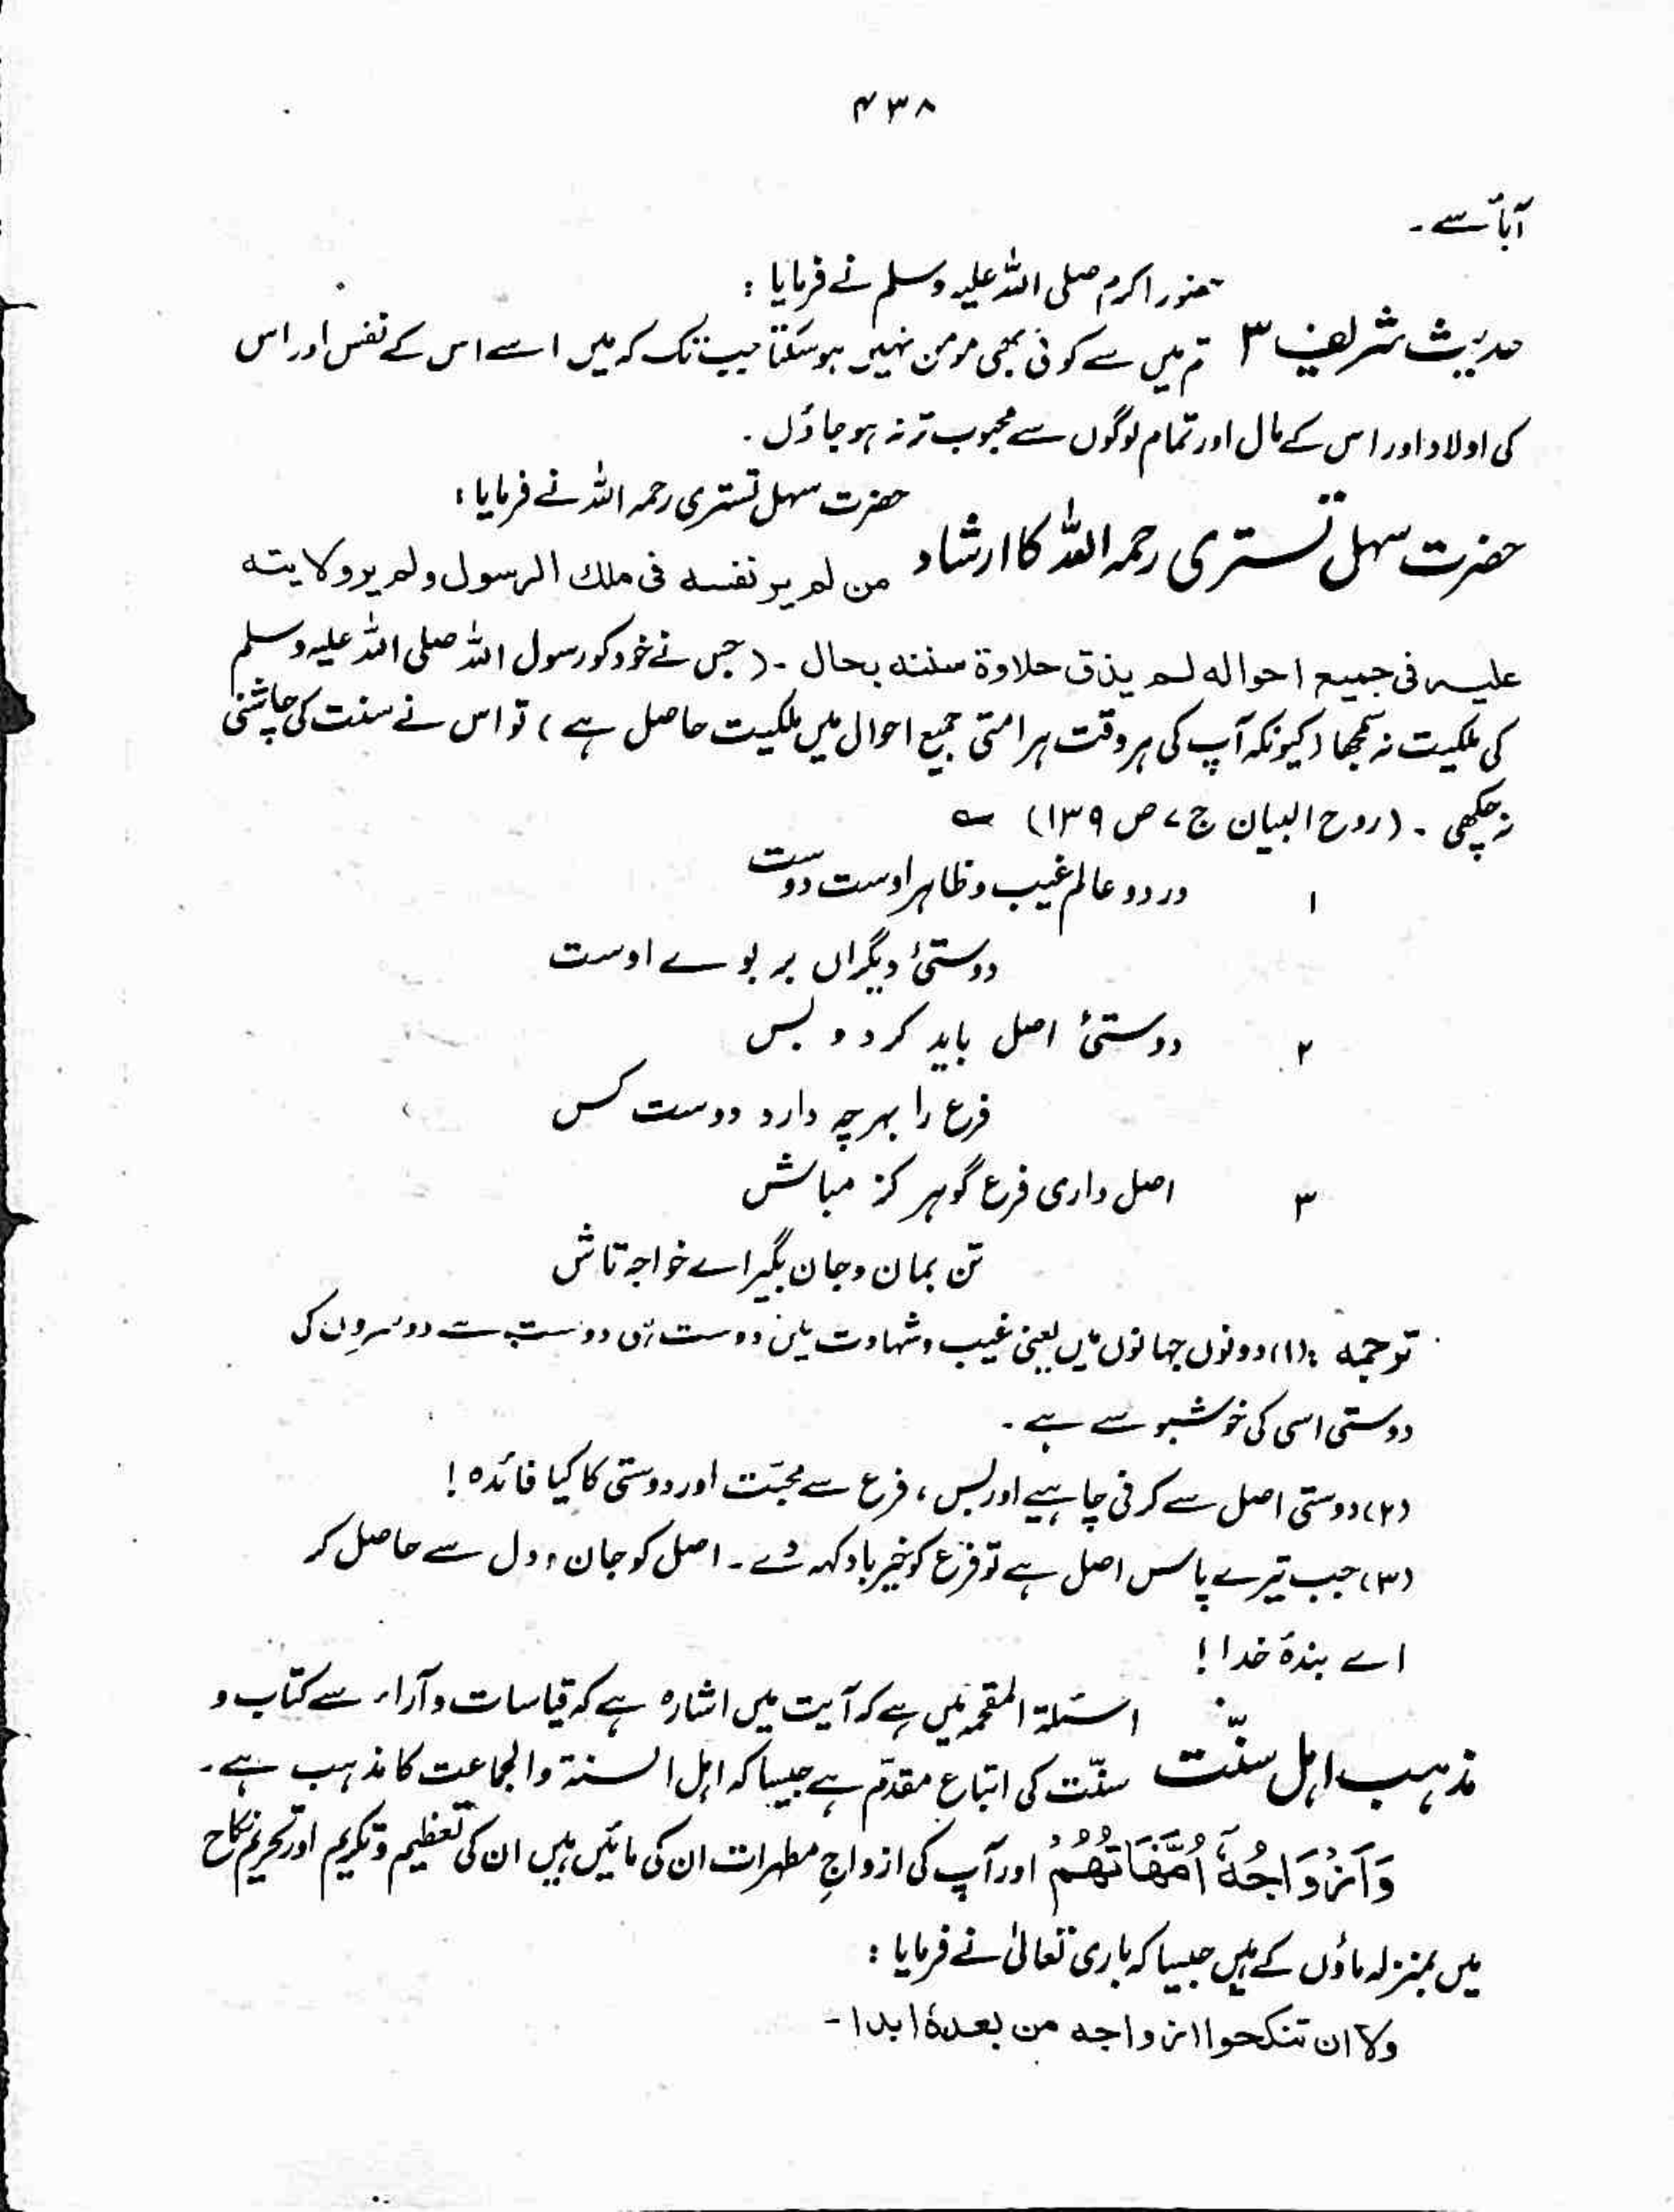 ۴۳۸
آبآ سے ۔
حضور اکرم صلی اللہ علیہ وسلم نے فرمایا :
حدیث شریف ۳ تم میں سے کوئی بھی مومن نہیں ہو سکتا جب تک کہ میں اسے اس کے نفس اور اس
کی اولاد اور اس کے مال اور تمام لوگوں سے محبوب تر نہ ہو جاؤں ۔
حضرت سہل تستری رحمہ اللہ نے فرمایا :
حضرت سہل تستری رحمہ اللہ کا ارشاد من لم یر نفسه فی ملك الرسول ولم یر ولایته
علیه فی جمیع احواله لم یذق حلاوة سنته بحال ۔ ( جس نے خود کو رسول اللہ صلی اللہ علیہ وسلم
کی ملکیت نہ سمجھا ( کیونکہ آپ کی ہر وقت ہر امتی جمیع احوال میں ملکیت حاصل ہے ) تو اس نے سنت کی چاشنی
نہ چکھی ۔ (روح البیان ج ۷ ص ۱۳۹) ؎
۱ در دو عالم غیب و ظاہر اوست دوست
دوستئ دیگراں بر بوے اوست
۲ دوستئ اصل باید کرد و بس
فرع را بہر چہ دارد دوست کس
۳ اصل داری فرع گو ہرگز مباش
تن بمان و جان بگیر اے خواجہ تاش
ترجمہ : (۱) دونوں جہانوں میں یعنی غیب و شہادت میں دوست وہی دوست ہے دوسروں کی
دوستی اسی کی خوشبو سے ہے ۔
(۲) دوستی اصل سے کرنی چاہیے اور بس ، فرع سے محبّت اور دوستی کا کیا فائدہ !
(۳) جب تیرے پاس اصل ہے تو فرع کو خیر باد کہہ دے ۔ اصل کو جان و دل سے حاصل کر
اے بندۂ خدا !
اسئلۃ المقحمہ میں ہے کہ آیت میں اشارہ ہے کہ قیاسات و آراء سے کتاب و
مذہب اہل سنّت سنّت کی اتباع مقدّم ہے جیسا کہ اہل السنۃ والجماعت کا مذہب ہے ۔
وَاَزْوَاجُهٗٓ اُمَّهَاتُهُمْ اور آپ کی ازواجِ مطہرات ان کی مائیں ہیں ان کی تعظیم و تکریم اور تحریم نکاح
میں بمنزلہ ماؤں کے ہیں جیسا کہ باری تعالیٰ نے فرمایا :
ولا ان تنكحوا ازواجه من بعدهٖ ابدا ۔